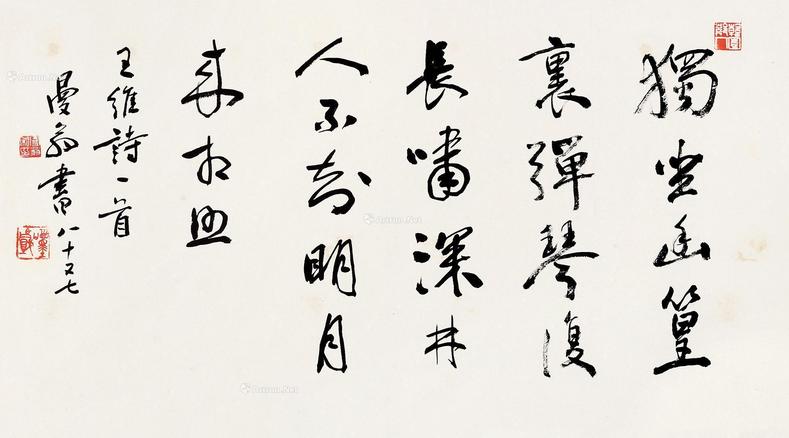 獨坐幽篁
裏彈琴復
長嘯深林
人不知明月
來相照
王維詩一首
曼翁書八十又七
Artron.Net
Artron.Net
Artron.Net